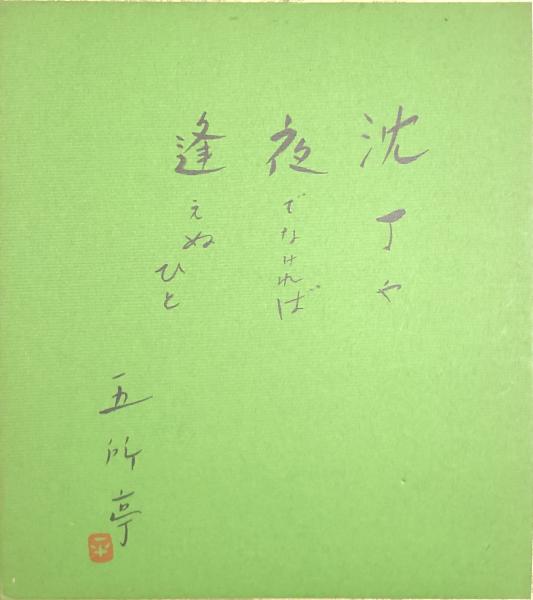 沈丁や
夜でなければ
逢えぬひと
五所亭